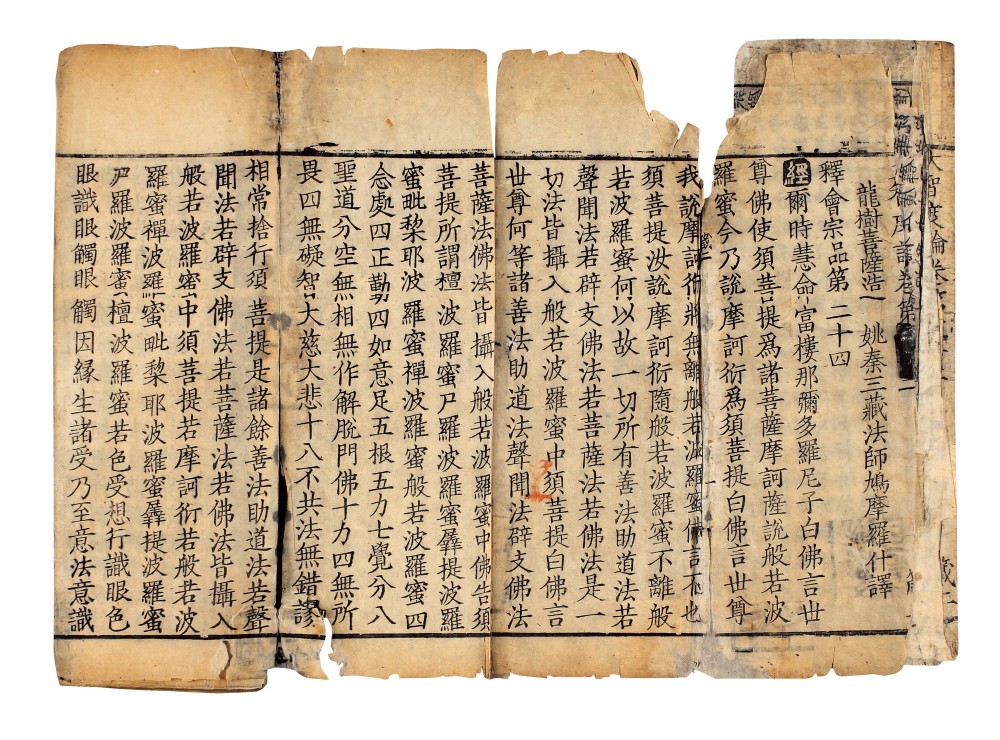 龍樹菩薩造 姚秦三藏法師鳩摩羅什譯
釋會宗品第二十四
經爾時慧命富樓那彌多羅尼子白佛言世
尊佛使須菩提爲諸菩薩摩訶薩說般若波
羅蜜今乃說摩訶衍爲須菩提白佛言世尊
我說摩訶衍將無離般若波羅蜜佛言不也
須菩提汝說摩訶衍隨般若波羅蜜不離般
若波羅蜜何以故一切所有善法助道法若
聲聞法若辟支佛法若菩薩法若佛法是一
切法皆攝入般若波羅蜜中須菩提白佛言
世尊何等諸善法助道法聲聞法辟支佛法
菩薩法佛法皆攝入般若波羅蜜中佛告須
菩提所謂檀波羅蜜尸羅波羅蜜羼提波羅
蜜毗黎耶波羅蜜禪波羅蜜般若波羅蜜四
念處四正勤四如意足五根五力七覺分八
聖道分空無相無作解脫門佛十力四無所
畏四無礙智大慈大悲十八不共法無錯謬
相常捨行須菩提是諸餘善法助道法若聲
聞法若辟支佛法若菩薩法若佛法皆攝入
般若波羅蜜中須菩提若摩訶衍若般若波
羅蜜禪波羅蜜毗黎耶波羅蜜羼提波羅蜜
尸羅波羅蜜檀波羅蜜若色受想行識眼色
眼識眼觸眼觸因緣生諸受乃至意法意識